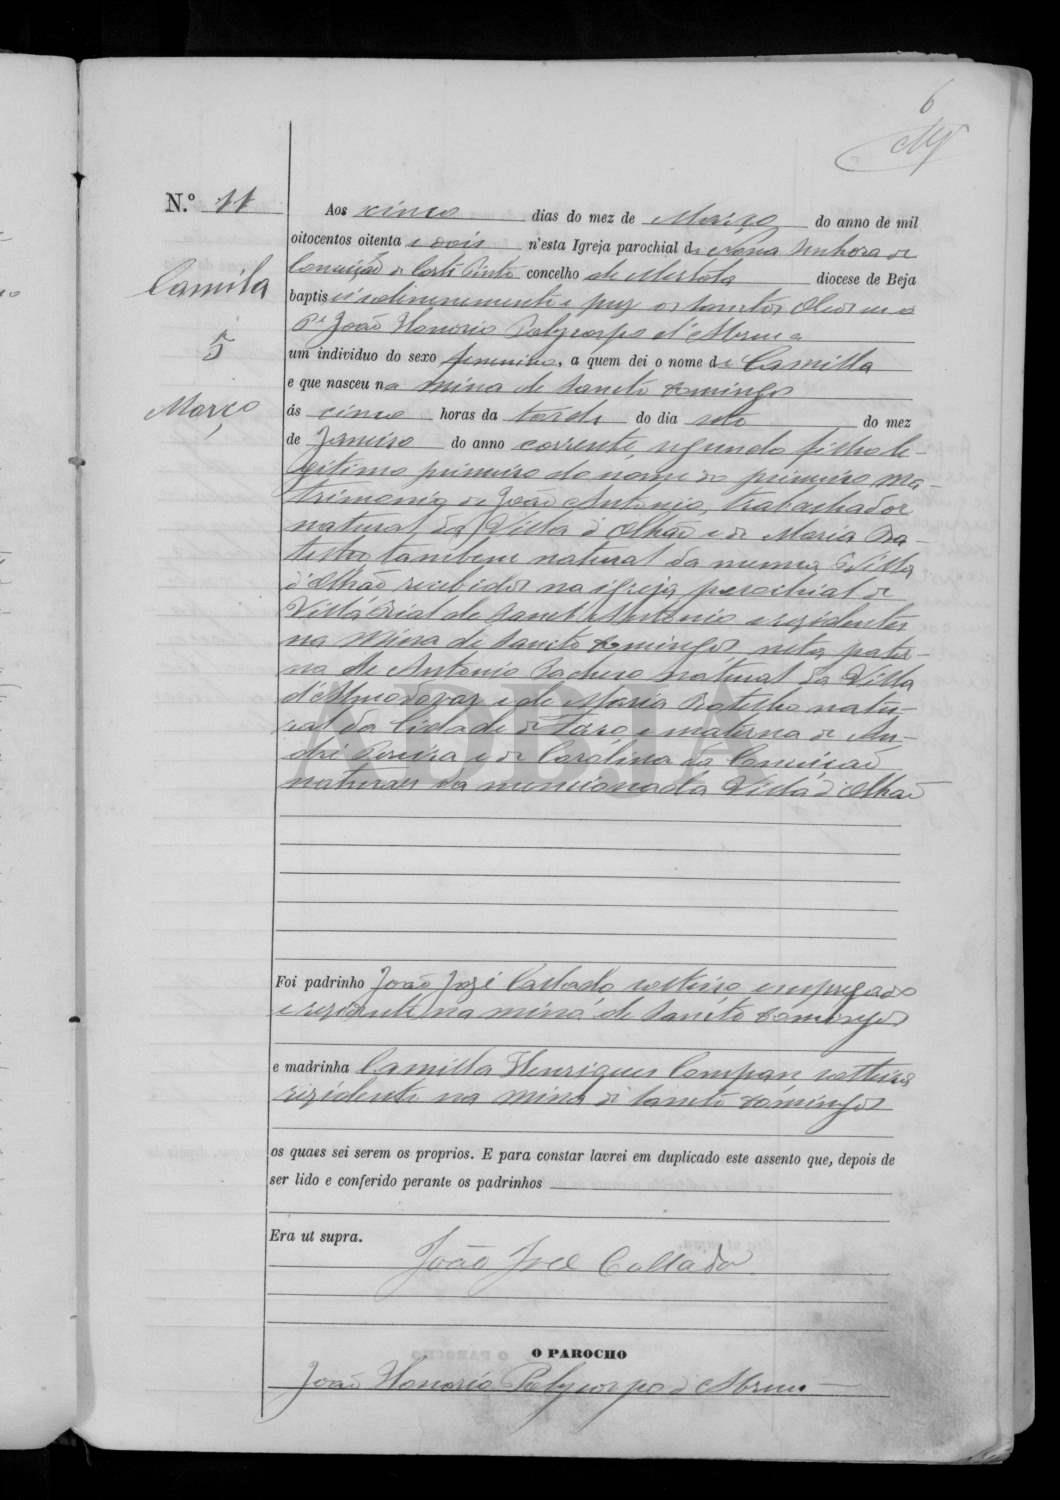 6
N.º 11
Camila
5
Março
Aos cinco dias do mez de Março do anno de mil
oitocentos oitenta e dois n'esta Igreja parochial de Nossa Senhora da
Conceição de Corte Pinto concelho de Mertola diocese de Beja
baptisei solemnemente e puz os sanctos oleos eu o
Pe João Honorio Polycarpo d'Abreu a
um individuo do sexo femenino, a quem dei o nome de Camilla
e que nasceu na mina de Sancto Domingos
ás cinco horas da tarde do dia do mez
de Janeiro do anno corrente, segundo filho le-
gitimo primeiro do nome do primeiro ma-
trimonio de João Antonio, trabalhador
natural da Villa d'Olhão e de Maria Ba-
tambem natural da mesma Villa
d'Olhão recebidos na igreja parochial de
Villa Real de Sancto Antonio e rezidentes
na Mina de Sancto Domingos, neta pater-
na de Antonio Pacheco natural da Villa
d'Almodovar e de Maria Botelho natu-
ral da Cidade de Faro e materna de An-
dré Pereira e de Carolina da Conceicão
naturaes da mencionada Villa d'Olhão
ADBJA
Foi padrinho João José Collado solteiro empregado
e rezidente na mina de Sancto Domingos
e madrinha Camilla Henriques Compan solteira
rezidente na mina de Sancto Domingos
os quaes sei serem os proprios. E para constar lavrei em duplicado este assento que, depois de
ser lido e conferido perante os padrinhos
Era ut supra.
João José Collado
O PAROCHO
João Honorio Polycarpo d'Abreu